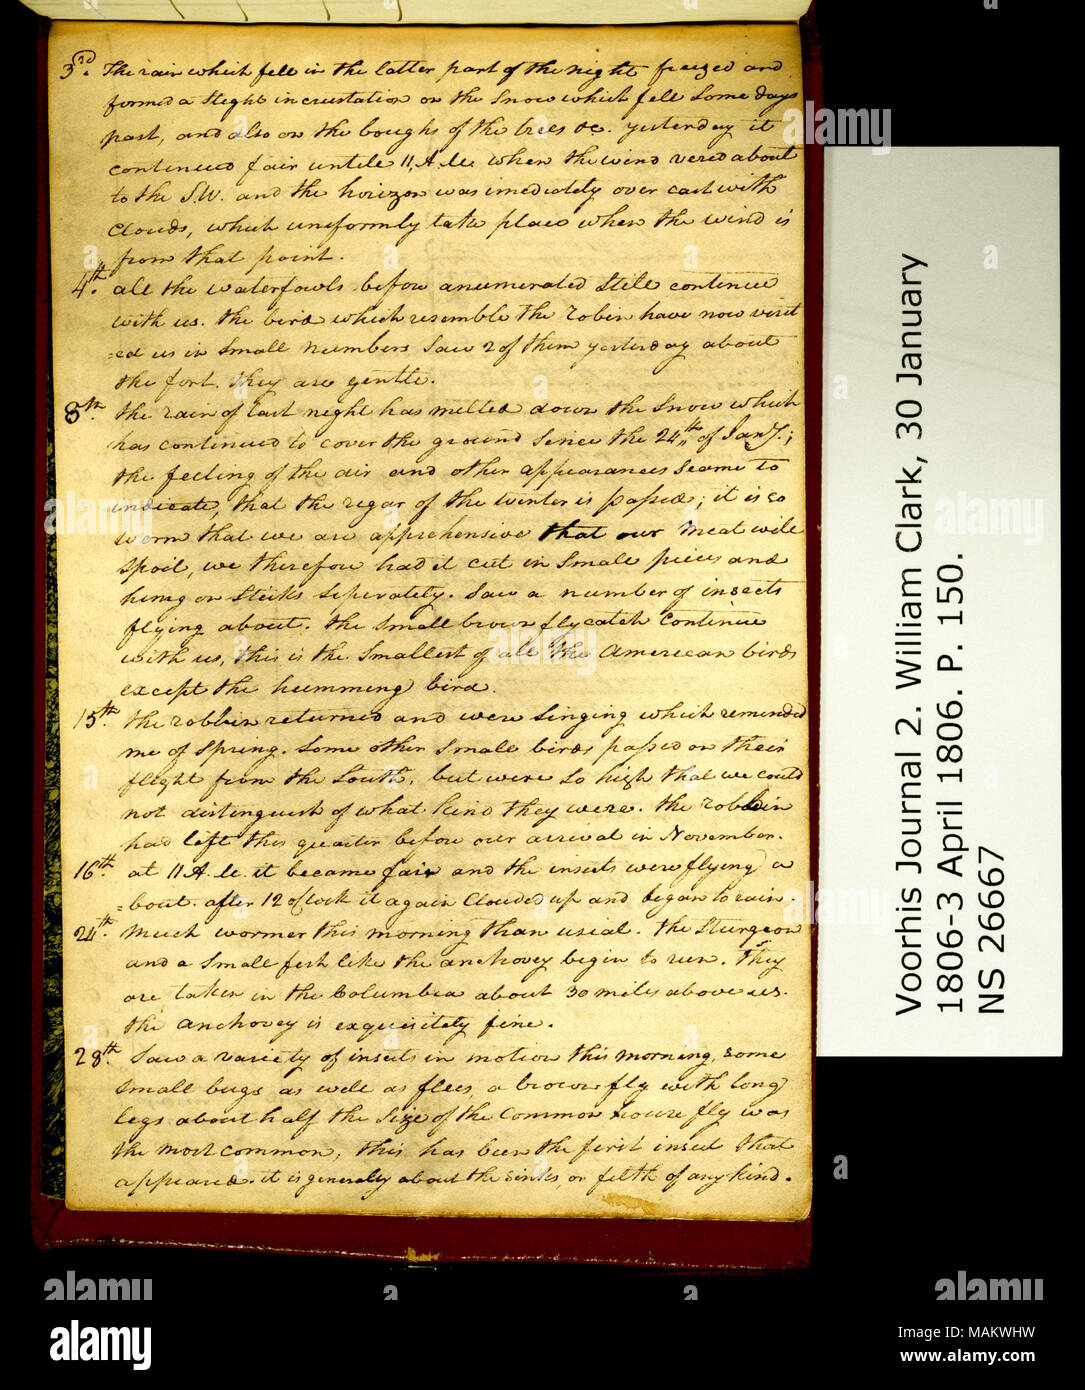 3rd. The rain which fell in the latter part of the night freezed and
formed a slight incrustation on the snow which fell some days
past, and also on the boughs of the trees &c. yesterday it
continued fair untill 11 A.M. when the wind vered about
to the S.W. and the horizon was imediately over cast with
Clouds, which uniformly take place when the wind is
from that point.
4th. all the waterfowls before enumerated Still continue
with us. the bird which resemble the robin have now visit
=ed us in small numbers Saw 2 of them yesterday about
the fort. they are gentle.
8th. the rain of last night has melted down the Snow which
has continued to cover the ground Since the 24th of Jany.;
the feeling of the air and other appearances Seame to
indicate, that the rigor of the winter is passed; it is so
worm that we are apprehensive that our meat will
Spoil, we therefore had it cut in Small pieces and
hung on Sticks Seperately. Saw a number of insects
flying about. the small brown flycatch continue
with us, this is the Smallest of all the American birds
except the humming bird.
15th. the robbin returned and were Singing which reminded
me of Spring. Some other Small birds passed on their
flight from the South, but were so high that we could
not distinguish of what kind they were. the robbin
had left this quarter before our arrival in November.
16th. at 11 A.M. it became fair and the insects were flying a
=bout. after 12 oClock it again Clouded up and began to rain.
24th. Much wormer this morning than usial. the Sturgeon
and a Small fish like the anchovey begin to run. They
are taken in the Columbia about 30 miles above us.
the anchovey is exquisitely fine.
28th. Saw a variety of insects in motion this morning, some
small bugs as well as flies, a brown fly with long
legs about half the Size of the Common house fly was
the most common, this has been the first insect that
appeared. it is generally about the sinks, or filth of any kind.
Voorhis Journal 2. William Clark, 30 January
1806-3 April 1806. P. 150.
NS 26667
alamy
Image ID: MAKWHW
www.alamy.com